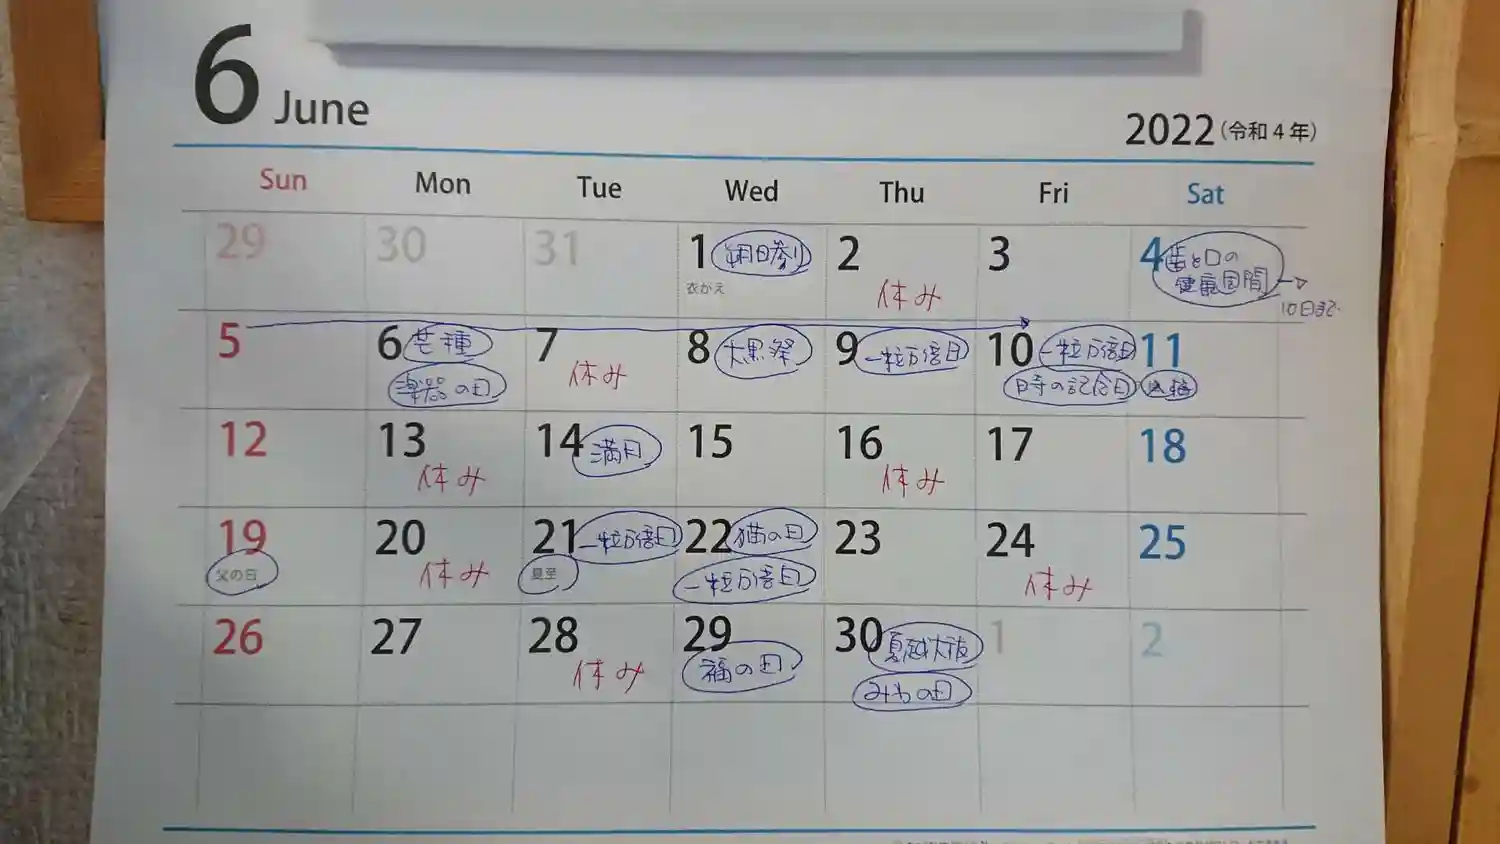 6 June
2022(令和4年)
Sun Mon Tue Wed Thu Fri Sat
29 30 31 1 朔日参り 2 3 4 歯と口の
健康週間
衣がえ 休み
10日まで
5 6 芒種 7 8 大黒祭 9 一粒万倍日 10 一粒万倍日 11
楽器の日 休み 時の記念日 入梅
12 13 14 満月 15 16 17 18
休み 休み
19 20 21 一粒万倍日 22 猫の日 23 24 25
父の日 休み 夏至 一粒万倍日 休み
26 27 28 29 30 夏越大祓 1 2
休み 福の日 みその日